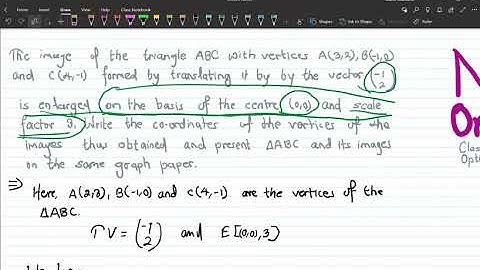 File Home Insert Draw View Help Class Notebook
Ink to Shape Ink to
The image of the triangle ABC with vertices A(3,2), B(-1,0)
and C(4,-1) formed by translating it by by the vector (-1 2)
is enlarged on the basis of the centre (0,0) and scale
factor 3. Write the co-ordinates of the vertices of the
images thus obtained and present ΔABC and its images
on the same graph paper.
⇒ Here, A(2,3), B(-1,0) and C(4,-1) are the vertices of the
ΔABC.
TV = (-1 2) and E[(0,0),3]
Clas
Opti